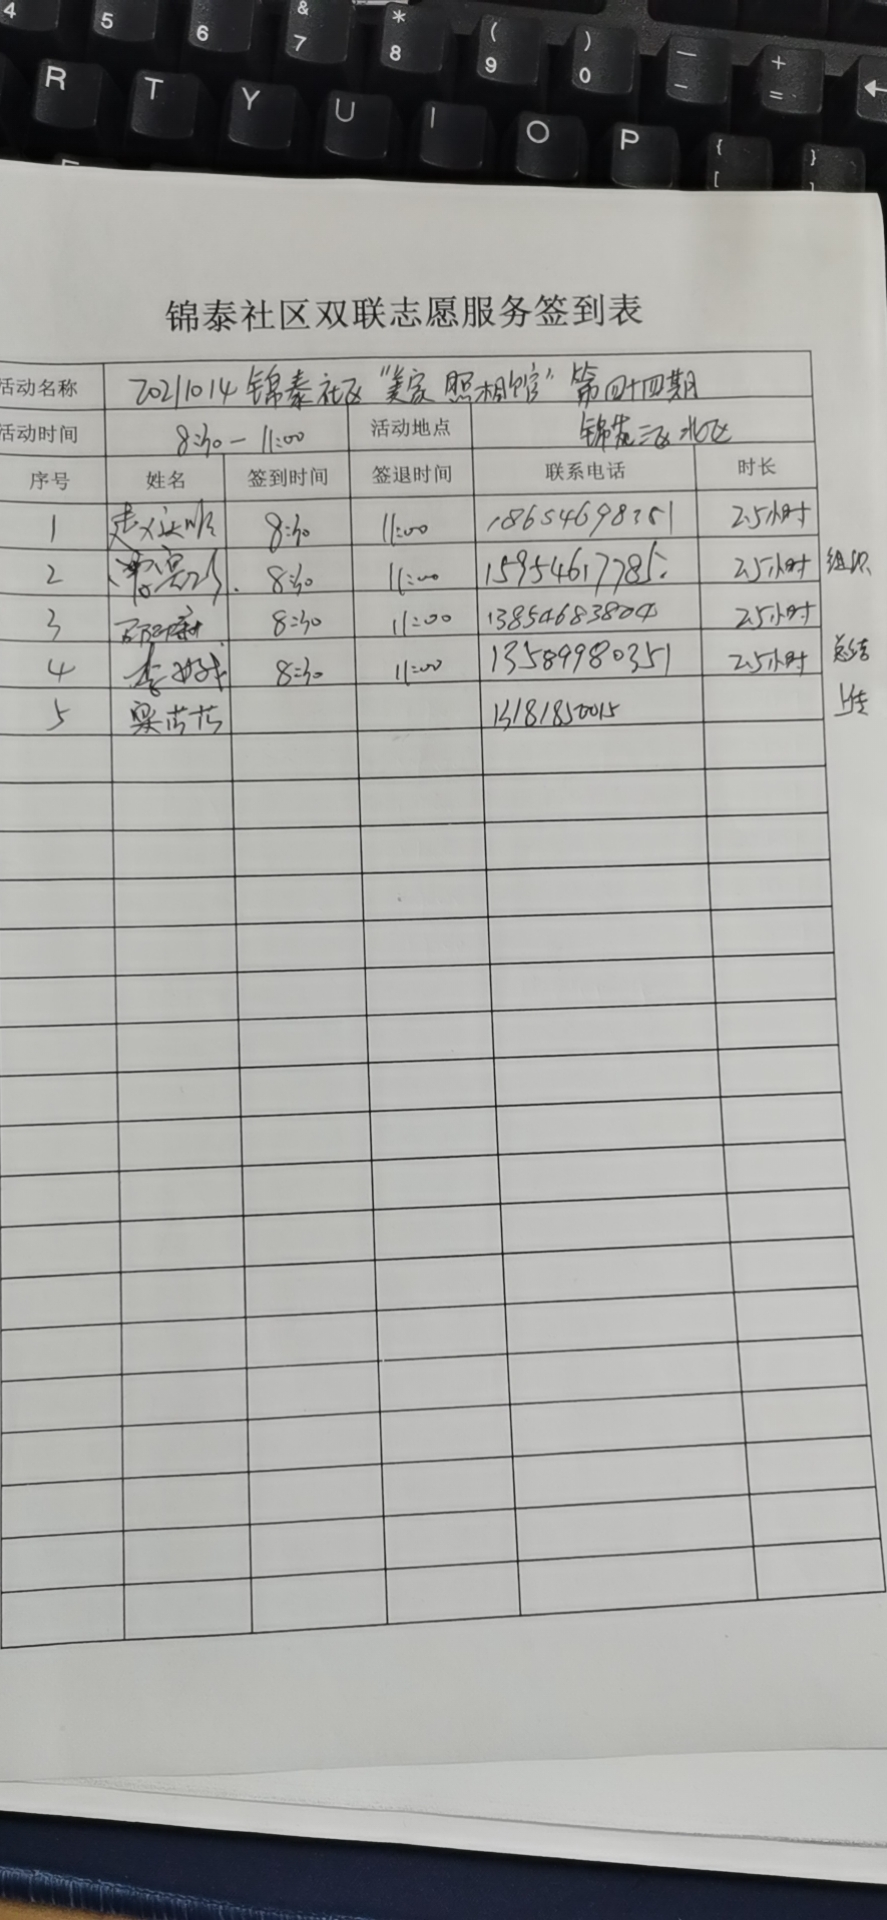 4 5 6 & 7 * 8 ( 9 ) 0 — - + = ←
R T Y U I O P { [ } ]
锦泰社区双联志愿服务签到表
活动名称 20211014 锦泰社区“美家照相馆”第四十四期
活动时间 8:30-11:00 活动地点 锦苑三区北区
序号 姓名 签到时间 签退时间 联系电话 时长
1 8:30 11:00 2.5小时
2 8:30 11:00 15954617785. 2.5小时 组织
3 8:30 11:00 13854683804 2.5小时
4 8:30 11:00 13589980351 2.5小时 总结
5 梁芸芸 13181850015 上传